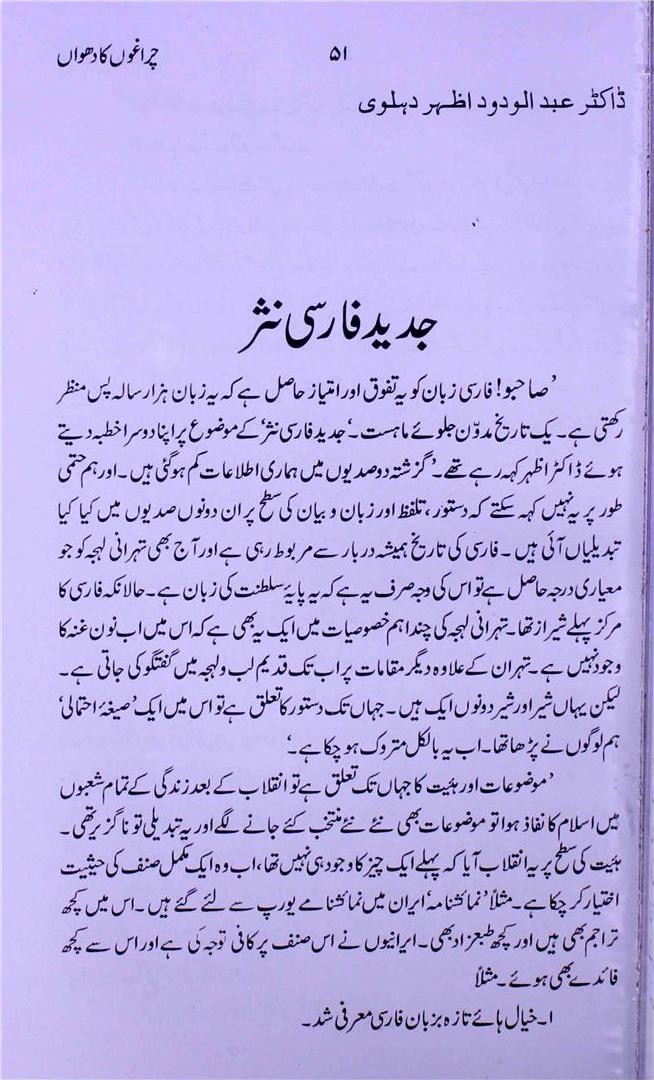 چراغوں کا دھواں
۵۱
ڈاکٹر عبد الودود اظہر دہلوی
جدید فارسی نثر
’صاحبو! فارسی زبان کو یہ تفوق اور امتیاز حاصل ہے کہ یہ زبان ہزار سالہ پس منظر
رکھتی ہے۔ یک تاریخ مدوّن جلوئے ماہست۔‘ ’جدید فارسی نثر‘ کے موضوع پر اپنا دوسرا خطبہ دیتے
ہوئے ڈاکٹر اظہر کہہ رہے تھے۔ ’گزشتہ دو صدیوں میں ہماری اطلاعات کم ہوگئی ہیں۔ اور ہم حتمی
طور پر یہ نہیں کہہ سکتے کہ دستور، تلفظ اور زبان و بیان کی سطح پر ان دونوں صدیوں میں کیا کیا
تبدیلیاں آئی ہیں۔ فارسی کی تاریخ ہمیشہ دربار سے مربوط رہی ہے اور آج بھی تہرانی لہجہ کو جو
معیاری درجہ حاصل ہے تو اس کی وجہ صرف یہ ہے کہ یہ پایۂ سلطنت کی زبان ہے۔ حالانکہ فارسی کا
مرکز پہلے شیراز تھا۔ تہرانی لہجہ کی چند اہم خصوصیات میں ایک یہ بھی ہے کہ اس میں اب نون غنہ کا
وجود نہیں ہے۔ تہران کے علاوہ دیگر مقامات پر اب تک قدیم لب و لہجہ میں گفتگو کی جاتی ہے۔
لیکن یہاں شیر اور شیر دونوں ایک ہیں۔ جہاں تک دستور کا تعلق ہے تو اس میں ایک ’صیغۂ احتمالی‘
ہم لوگوں نے پڑھا تھا۔ اب یہ بالکل متروک ہو چکا ہے۔‘
’موضوعات اور ہیٔت کا جہاں تک تعلق ہے تو انقلاب کے بعد زندگی کے تمام شعبوں
میں اسلام کا نفاذ ہوا تو موضوعات بھی نئے نئے منتخب کئے جانے لگے اور یہ تبدیلی تو ناگزیر تھی۔
ہیٔت کی سطح پر یہ انقلاب آیا کہ پہلے ایک چیز کا وجود ہی نہیں تھا، اب وہ ایک مکمل صنف کی حیثیت
اختیار کر چکا ہے۔ مثلاً ’نمائشنامہ‘ ایران میں نمائشنامے یورپ سے لئے گئے ہیں۔ اس میں کچھ
تراجم بھی ہیں اور کچھ طبعزاد بھی۔ ایرانیوں نے اس صنف پر کافی توجہ کی ہے اور اس سے کچھ
فائدے بھی ہوئے۔ مثلاً
۱۔ خیال ہائے تازہ بزبان فارسی معرفی شد۔